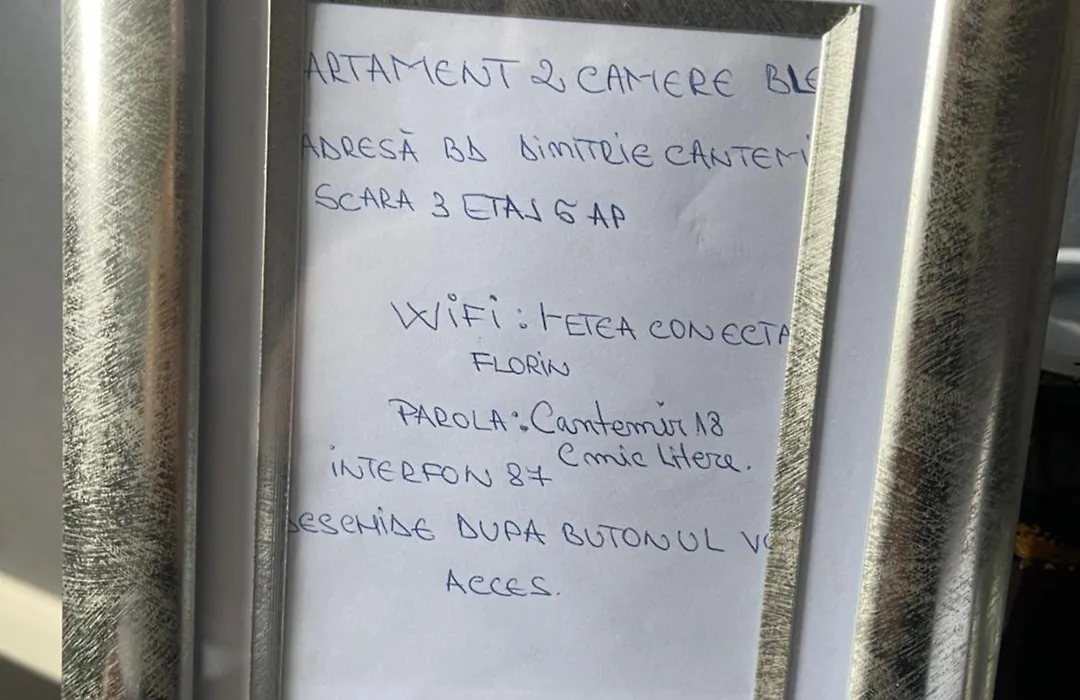 ARTAMENT 2 CAMERE BLO
ADRESĂ BD DIMITRIE CANTEMI
SCARA 3 ETAJ 6 AP
WIFI: RETEA CONECTA
FLORIN
PAROLA: Cantemir18
C mic litere.
INTERFON 87
DESCHIDE DUPA BUTONUL
ACCES.